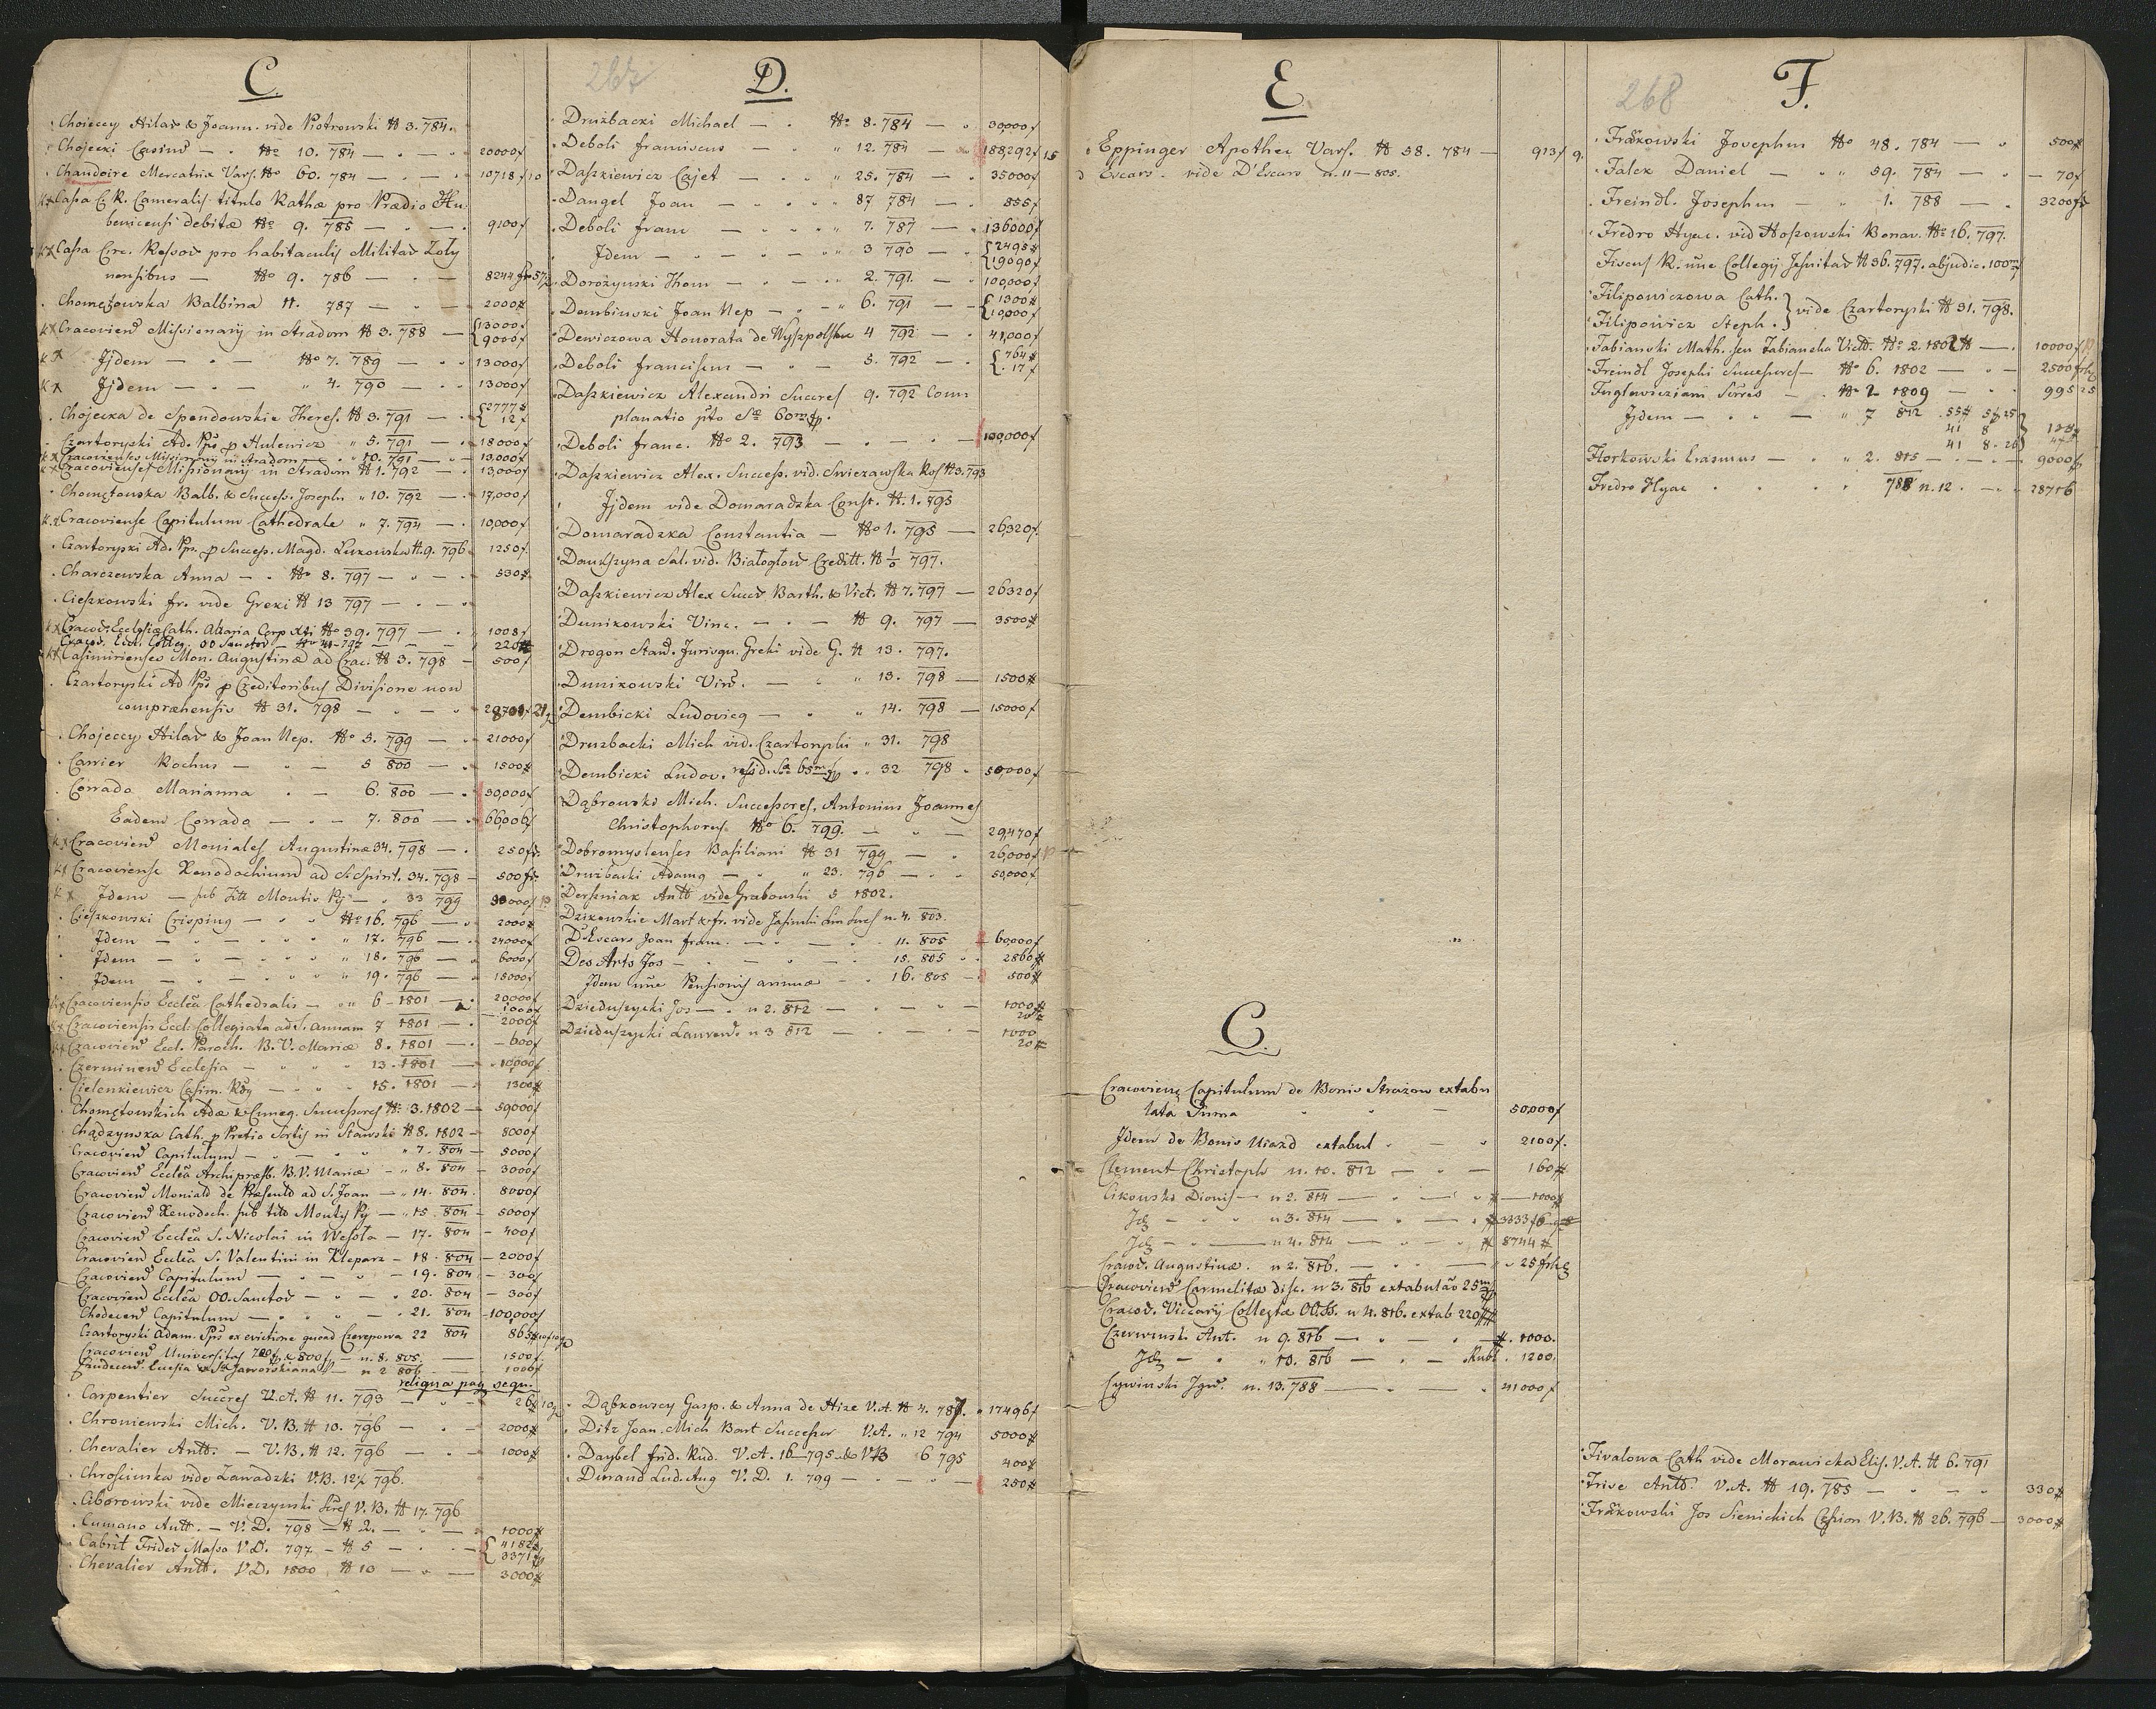 C.
Chojeccy Hilar & Joann. vide Piotrowski № 3. 784.
Chojecki Casimi № 10. 784 — 20000f
Chaudoire Mercatrix Vars. № 60. 784 — 10718f 10
Cassa C. R. Cameralis titulo Rathæ pro Prædio Hu
benicensi debitæ № 9. 785 — 9100f
Cassa Circ. Ressov pro habitaculis Militar Zoly
nensibus — № 9. 786 — 8244f 57
Chomętowska Balbina 11. 787 — 2000#
Cracovien Missionarij in Stradom № 3. 788 — 13000f
9000f
Ijdem — № 7. 789 — 13000f
Ijdem — " 4. 790 — 13000f
Chojecka de Spendowskie Theres. № 3. 791 — 2777#
12f
Czartoryski Ad. Pps p Hulewicz " 5. 791 — 18000f
Cracovienses Missionarij in Stradom " 10. 791 — 13,000f
Cracovienses Missionarij in Stradom № 1. 792 — 13,000f
Chomętowska Balb. & Success. Joseph. " 10. 792 — 17,000f
Cracoviense Capitulum Cathedrale " 7. 794 — 10,000f
Czartoryski Ad. Pps. p Success. Magd. Lukowska № 9. 796 1250f.
Charczewska Anna — № 8. 797 — 530#
Cieszkowski fr. vide Greki № 13 797 —
Cracov. Ecclesiæ Cath. Altaria Corp Xti № 39. 797 — 1008f
Cracov. Eccl. Colleg. OO Sanctor — № 41-797 — 220#
Casimirienses Mon. Augustinæ ad Crac. № 3. 798 — 500f
Czartoryski Ad Pps p Creditoribus Divisione non
compræhensis № 31. 798 — 21
Chojeccy Hilar & Joan Nep. № 5. 799 — 21000f
Carrier Rochus — 5 800 — 1500#
Corrado Marianna — 6. 800 — 50,000f
Eadem Corrado — 7. 800 — 66,006f
Cracovien Moniales Augustinæ 34. 798 — 250fr.
Cracoviense Xenodochium ad S. Spirit. 34. 798 — 500fr.
Idem — sub Titt Montis Pij — 33 799
Cieszkowski Crisping — № 16. 796 — 2000#
Idem — " 17. 796 — 24000f
Idem — " 18. 796 — 6000f
Idem — " 19. 796 — 18000f
Cracoviensis Ecclea Cathedralis — 6 — 1801 — 20,000f
1000f
Cracoviensis Eccl. Collegiata ad S. Annam 7 1801 — 2000f
Cracovien Eccl. Paroch. B. V. Mariæ 8. 1801 — 600f
Czerminen Ecclesia — 13. 1801 — 10,000f
Cielenkiewicz Casim. — 15. 1801 — 1300#
Chomętowskich Adæ & Cuneg. Successores № 3. 1802 — 50,000f
Chądzynska Cath. p Pretio Sortis in Stawski № 8. 1802 — 8000f
Cracovien Capitulum — " 7. 804 — 5000f
Cracovien Ecclea Archipræsb. B. V. Mariæ — " 8. 804 — 3000f
Cracovien Moniald de Præsentd ad S. Joan — " 14. 804. 8000f
Cracovien Xenodoch. sub tito Montis Pij — " 15. 804 — 5000f
Cracovien Ecclea S. Nicolai in Wesoła — 17. 804 — 400f
Cracovien Ecclea S. Valentini in Kleparz — 18. 804 — 2000f
Cracovien Capitulum — 19. 804 — 300f
Cracovien Ecclea OO. Sanctor — 20. 804 — 300f
Chodecens Capitulum — 21. 804 — 100,000f
Czartoryski Adam. Pps ex evictione quoad Czerepowa 22 804
Cracovien Universitas 700f & 800f — n. 8. 805. — 1500f
n 2 806 — 1000f
reliqua pag sequ.
Carpentier Succres V. A. № 11. 793 —
Chroniewski Mich. V. B. № 10. 796 — 2000#
Chevalier Antt. — V. B. № 12. 796 — 1000#
Chrościnska vide Zawadzki V.B. 12½ 796.
Ciborowski vide Mierzynski Sucres V. B. № 17. 796
Cumano Antt. — V. D. 798 — № 2. — 1000#
Cabrit Frider Massa V. D. 797 — № 5 — 4182#
3371f
Chevalier Antt. V D. 1800 № 10 — 3000#
267
D.
Drużbacki Michael — № 8. 784 — 30,000f
Deboli franciscus — " 12. 784 — 188,292f 15
Daszkiewicz Cajet — " 25. 784 — 35000f
Dangel Joan — " 87 784 — 855f
Deboli franc — " 7. 787 — 136000f
Idem — " 3 790 — 2498#
19090f
Dorożynski Thom — " 2. 791. — 100,000f
Dembinski Joan Nep — " 6. 791 — 1300#
10,000f
Dewiczowa Honorata de Wyszpolskie 4 792 — 41,000f
Deboli franciscus — 5. 792 — 764#
17f
Daszkiewicz Alexandri Succres 9. 792 Com
planatio pto Sæ 60m fp.
Deboli franc. № 2. 793 — 100,000f
Daszkiewicz Alex. Success. vid. Swiezawska Ros № 3. 793
Ijdem vide Domaradzka Const. № 1. 795
Domaradzka Constantia — № 1. 795 — 26,320f.
Daukszyna Sal. vid. Białogłow Creditt. № 1/0 797.
Daszkiewicz Alex Succr Barth. & Vict. № 7. 797 — 26320f
Dunikowski Vinc. — № 9. 797 — 3500#
Drogon Stan. Jurisqu. Greki vide G. № 13. 797.
Dunikowski Vinc. — " 13. 798 — 1500#
Dembicki Ludovicq — " 14. 798 — 15000f
Druzbacki Mich vid. Czartoryski " 31. 798
Dembicki Ludov. resid. Sæ 65m fp " 32 798 — 50,000f
Dąbrowski Mich. Successores, Antonius Joannes
Christophorus. № 6. 799. — 29,470f
Dobromyslenses Basiliani № 31 799 — 26,000f
Drużbacki Adamq — " 23. 796 — 50,000f
Derszniak Antt vide Grabowski 5 1802.
Dzikowskie Mart & fr. vide n. 4. 803.
D'Escars Joan franc. — 11. 805 — 60,000f
Des Arts Jos — 15. 805 — 2860#
Idem une Pensionis annuæ — 16. 805 — 500#
Dzieduszycki Jos — n 2. 812 — 1000#
20#
Dzieduszycki Laurens. n 3 812 — 1000
20#
Dąbkowscy Gasp. & Anna de Hize V. A. № 4. 787. 17496f
Ditz Joan. Mich Bart Successor V. A. " 12 794 5000#
Daybel frid. Rud. V. A. 16—795 & VB 6 795 400#
Durand Lud. Aug V. D. 1. 799 — 250#
E
Eppinger Apothec Vars. № 58. 784 — 913f 9.
Escars. vide D'Escars n. 11 — 805.
C.
Cracovienz Capitulum de Bonis Strażow extabu
lata Suma — 50,000f
Idem de Bonis Uiazd extabul — 2100f.
Clement Christoph n. 10. 812 — 160#
Cikowski Dionis — n 2. 814 — 1000#
Idz — n 3. 814 —
Idz — n 4. 814 — # 8744#
Cracov. Augustinæ. n 2. 816. —
Cracovien Carmelitæ disc. n 3. 816 extabulão 25m
Cracov. Viccarij Collegtæ OO. SS. n 4. 816. extab 220#
Czerwinsk. Ant. n 9. 816 — #. 1000.
Idz — " 10. 816 — Rubl. 1200.
Cywinski Ign. n. 13. 788 — 41000f
268
F.
Frăkowski Josephus № 48. 784 — 500#
Falck Daniel — " 59. 784 — 70f
Freindl. Josephus — " 1. 788 — 3200fr
Fredro Hyac. vid Hoszowski Bonav. № 16. 797.
Fiscus R. une Collegij Jesuitar № 36. 797. abjudic. 100m
Filipowiczowa Cath.
Filipowicz Steph. } vide Czartoryski № 31. 798.
Fabianski Math. seu Fabianska Victt. № 2. 1802 — 10000f
Freindl Josephi Successores — № 6. 1802 — 2500
№ 2 1809 — 995 25
Ijdem — " 7 812 . 55# 5f 25
41 8
41 8. 26
Florkowski Erasmus — " 2. 815 — 9000f
Fredro Hyac 788 n. 12. — 28716
Fivalowa Cath vide Morawicka Elis. V. A. № 6. 791
Frise Antt. V. A. № 19. 785 — 330#
Frăkowski Jos Sienickich Cession V. B. № 26. 796 — 3000#